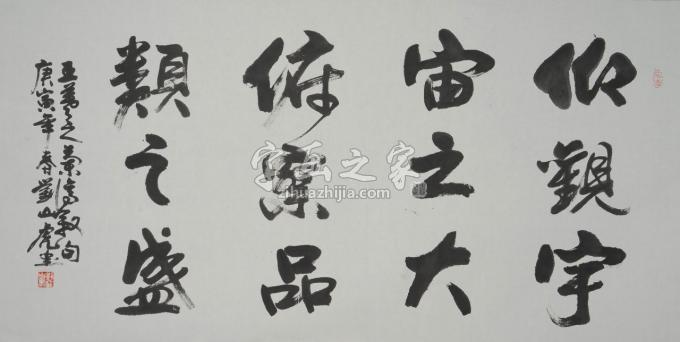 仰觀宇
宙之大
俯察品
類之盛
王羲之蘭亭敘句
庚寅年春山虎書
字画之家
www.zihuazhijia.com